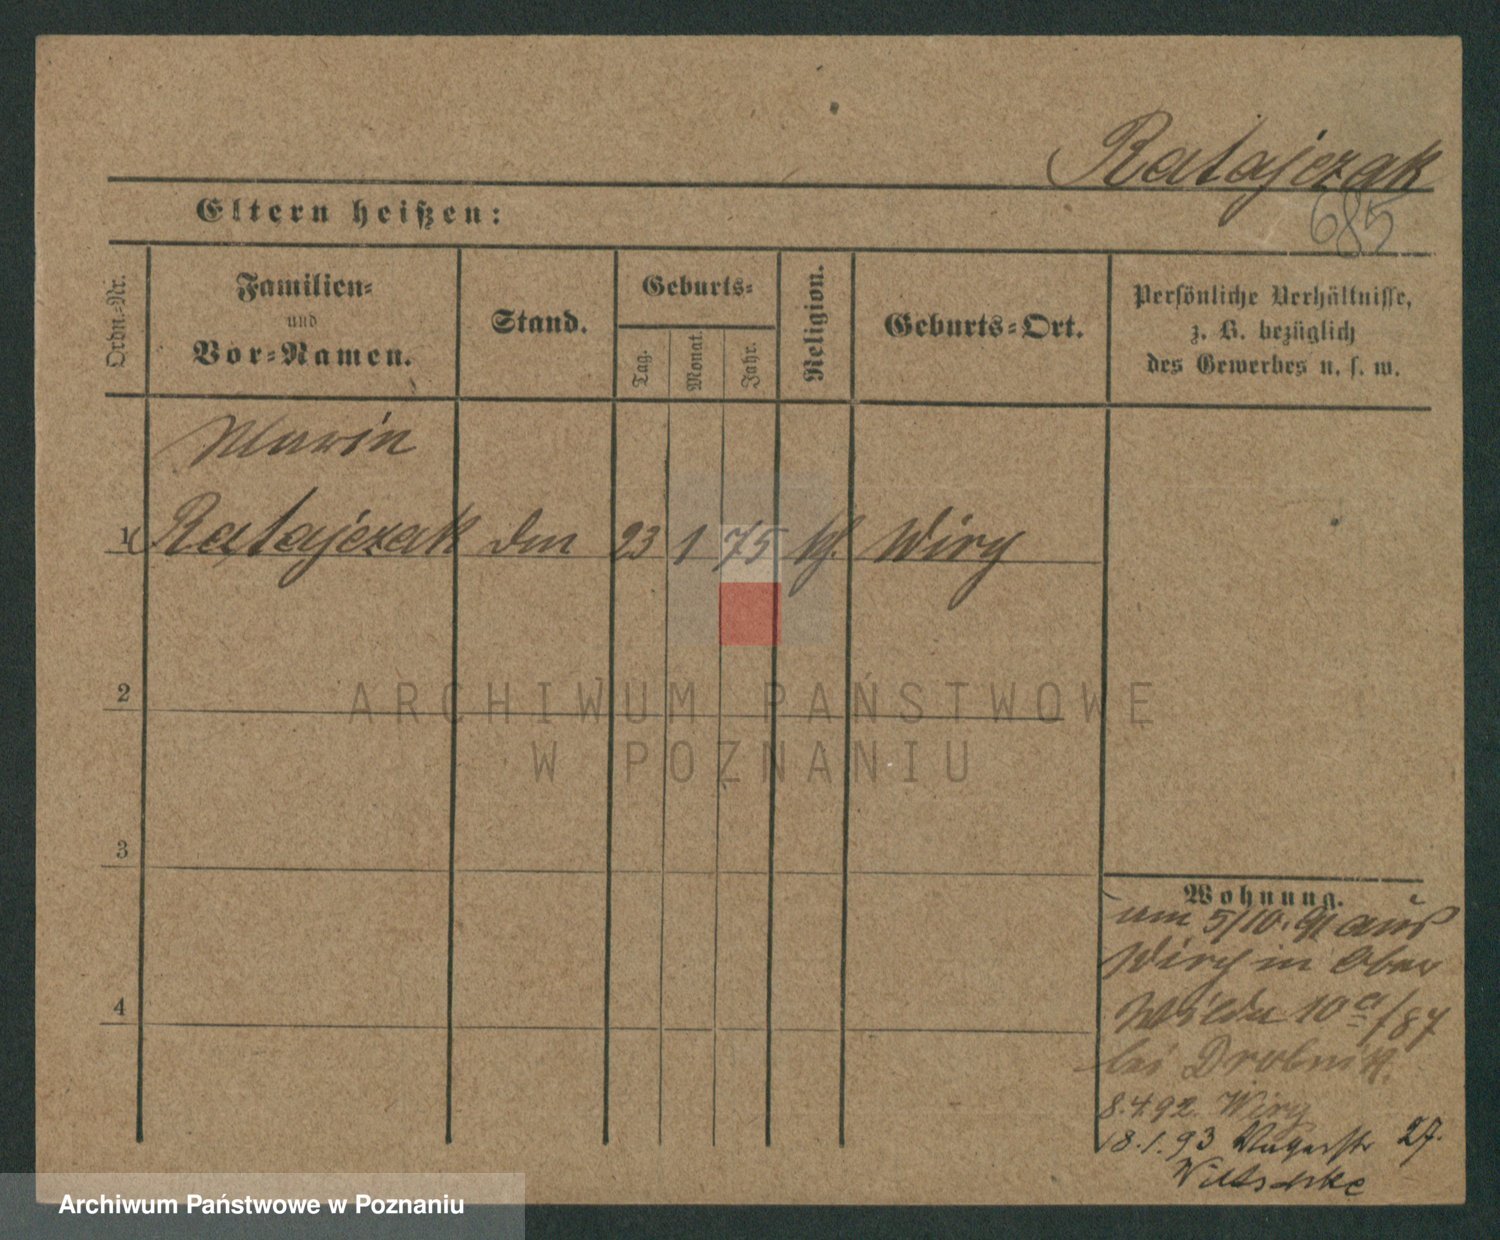 Ratajczak
685
Eltern heißen:
Ordn.-Nr.
Familien-
und
Vor-Namen.
Stand.
Geburts-
Tag.
Monat.
Jahr.
Religion.
Geburts-Ort.
Persönliche Verhältnisse,
z. B. bezüglich
des Gewerbes u. s. w.
Marie
1 Ratajczak 23 1 75 kf. Wiry
2
3
4
Wohnung.
am 5/10. 91 aus
Wiry in Ober
Wilda 10 a/87
bei Drobnik.
8.4.92 Wiry
18.1.93 27.
Wittschke
ARCHIWUM PAŃSTWOWE
W POZNANIU
Archiwum Państwowe w Poznaniu